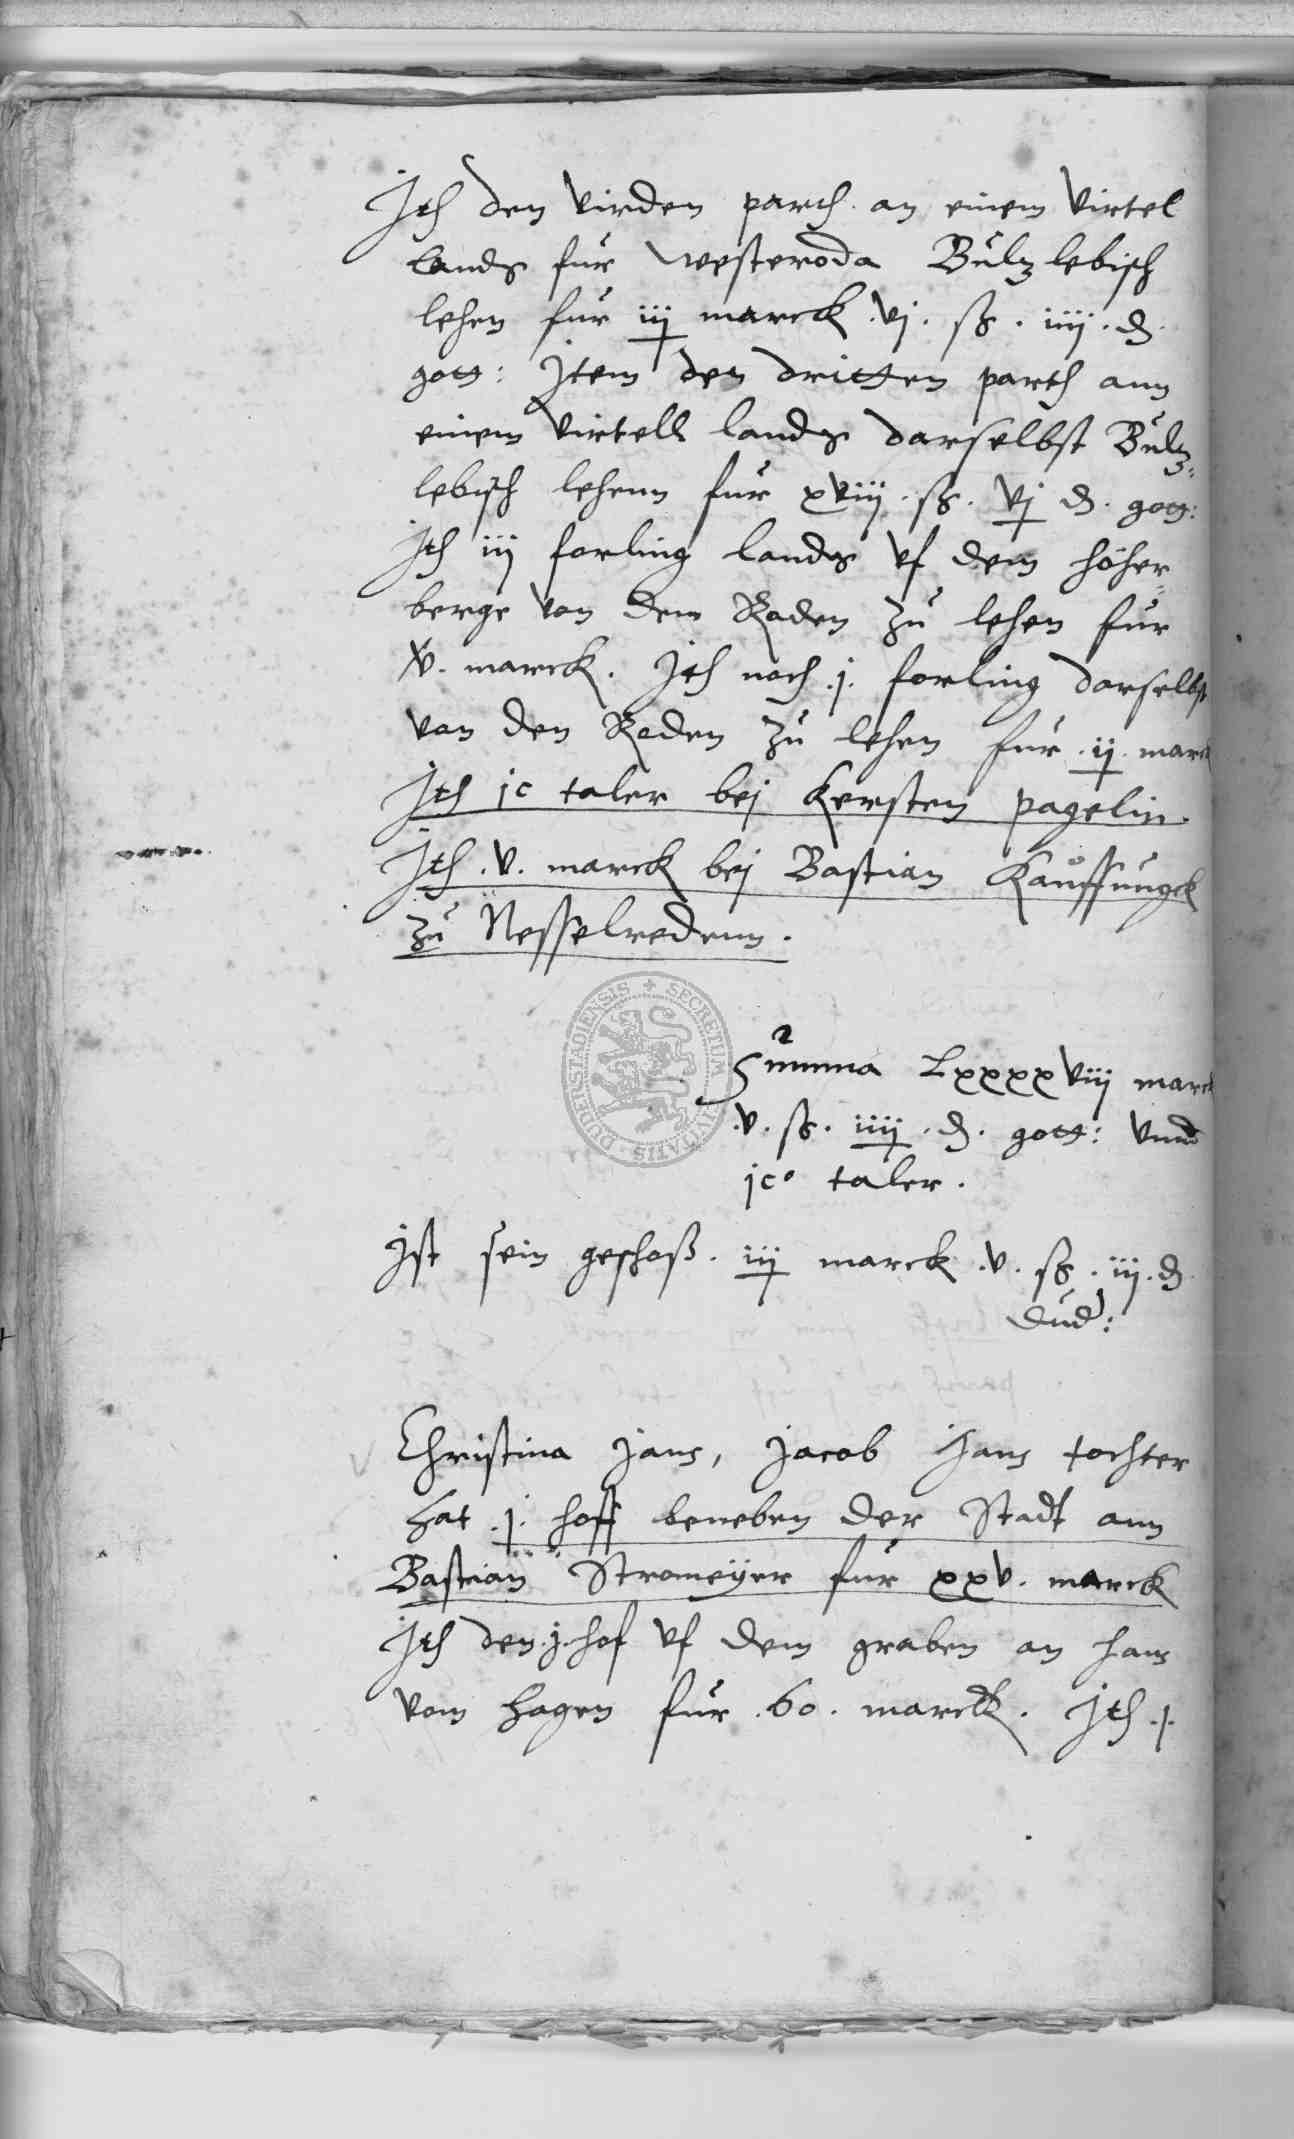 Ith den virden parth an einem virtel
lands fur westeroda Bultz lebisch
lehen fur iij marck .vj. ß. iiij. d.
gott: Jtem den dritten parth ann
einem virtell lands darselbst Bultz-
lebisch lehenn fur xviij. ß. vj d. gott:
Ith iij forling lands vf dem höher-
berge von dem Roden zu lehen fur
v. marck. Ith noch .j. forling darselbst
von den Roden zu lehen fur .ij. marck
Ith jc taler bej Kersten pagelin.
Ith .v. marck bej Bastian Kauffungck
zu Nesselredenn.
SECRETUM CIVITATIS DUDERSTADIENSIS
Summa Lxxxxviij marck
.v. ß. iiij. d. gott: vnnd
jco taler.
Ist sein geschoß. iij marck .v. ß. iij. d
dud:
Christina Jans, Jacob Jans tochter
hat .j. hoff beneben der Stadt ann
Bastian Stromeÿer fur xxv. marck
Ith den .j. hof vf dem graben an hans
vom hagen fur .60. marck. Ith .j.